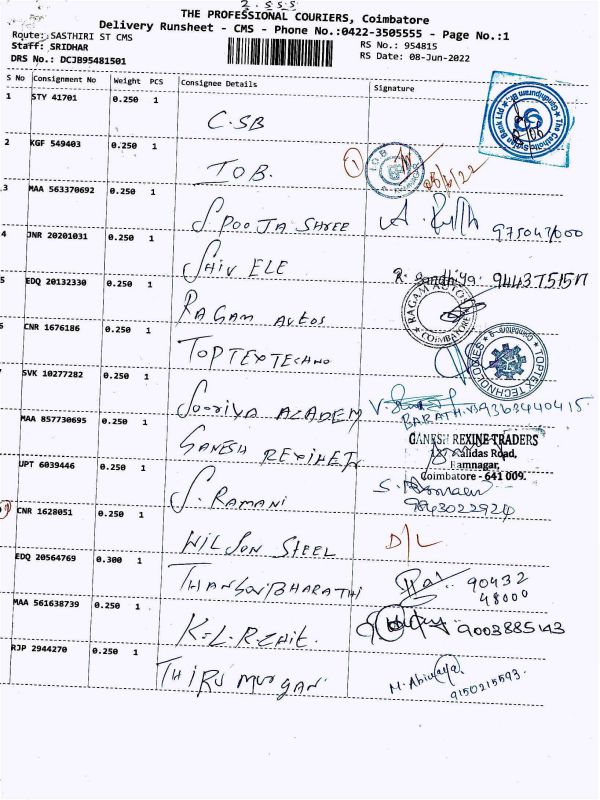 2.SSS
THE PROFESSIONAL COURIERS, Coimbatore
Delivery Runsheet - CMS - Phone No.:0422-3505555 - Page No.:1
Route: SASTHIRI ST CMS
Staff: SRIDHAR
DRS No.: DCJB95481501
RS No.: 954815
RS Date: 08-Jun-2022
S No Consignment No Weight PCS Consignee Details Signature
1 STY 41701 0.250 1 C.SB
2 KGF 549403 0.250 1 IOB. 1 08/6/22
3 MAA 563370692 0.250 1 S POOJA SHREE
4 JNR 20201031 0.250 1 SHIV ELE R. Sandhiya.
5 EDQ 20132330 0.250 1 RAGAM AUTOS RAGAM AUTOS COIMBATORE
6 CNR 1676186 0.250 1 TOPTEXTECHNO TOPTEX TECHNOLOGIES
7 SVK 10277282 0.250 1 SOORIYA ACADEM BARATH.V 9363440415
MAA 857730695 0.250 1 GANESH REXINETR GANESH REXINE TRADERS
Kalidas Road,
Ramnagar,
Coimbatore - 641 009.
UPT 6039446 0.250 1 S. RAMANI
CNR 1628051 0.250 1 WILSON STEEL D/L
EDQ 20564769 0.300 1 90432
48000
MAA 561638739 0.250 1 9003885143
RJP 2944270 0.250 1 THIRUMURGAN M. Abinaya
9150215593.